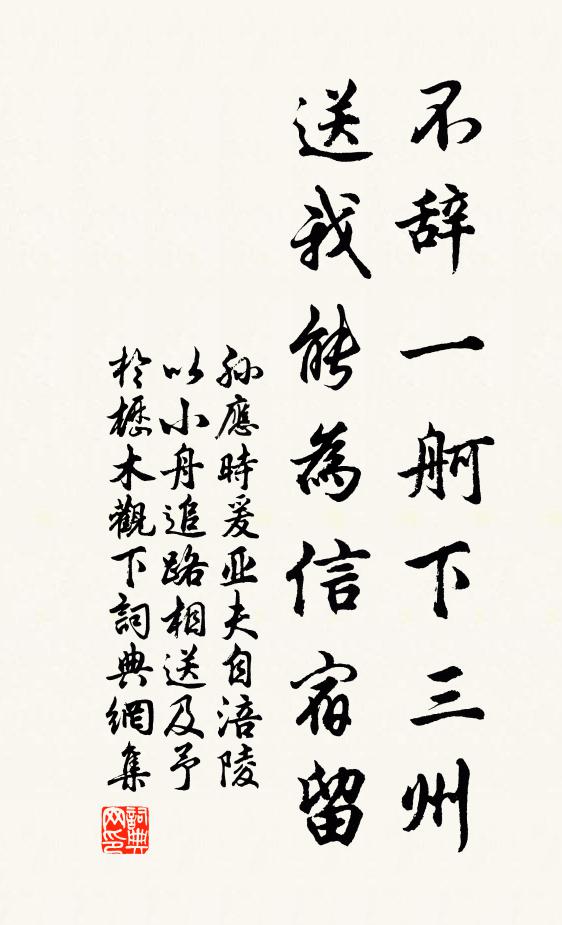 不辞一舸下三州
送我能為信宿留
孙應時爰亚夫自涪陵
以小舟追路相送及予
於櫪木觀下詞典網集
詞典网印